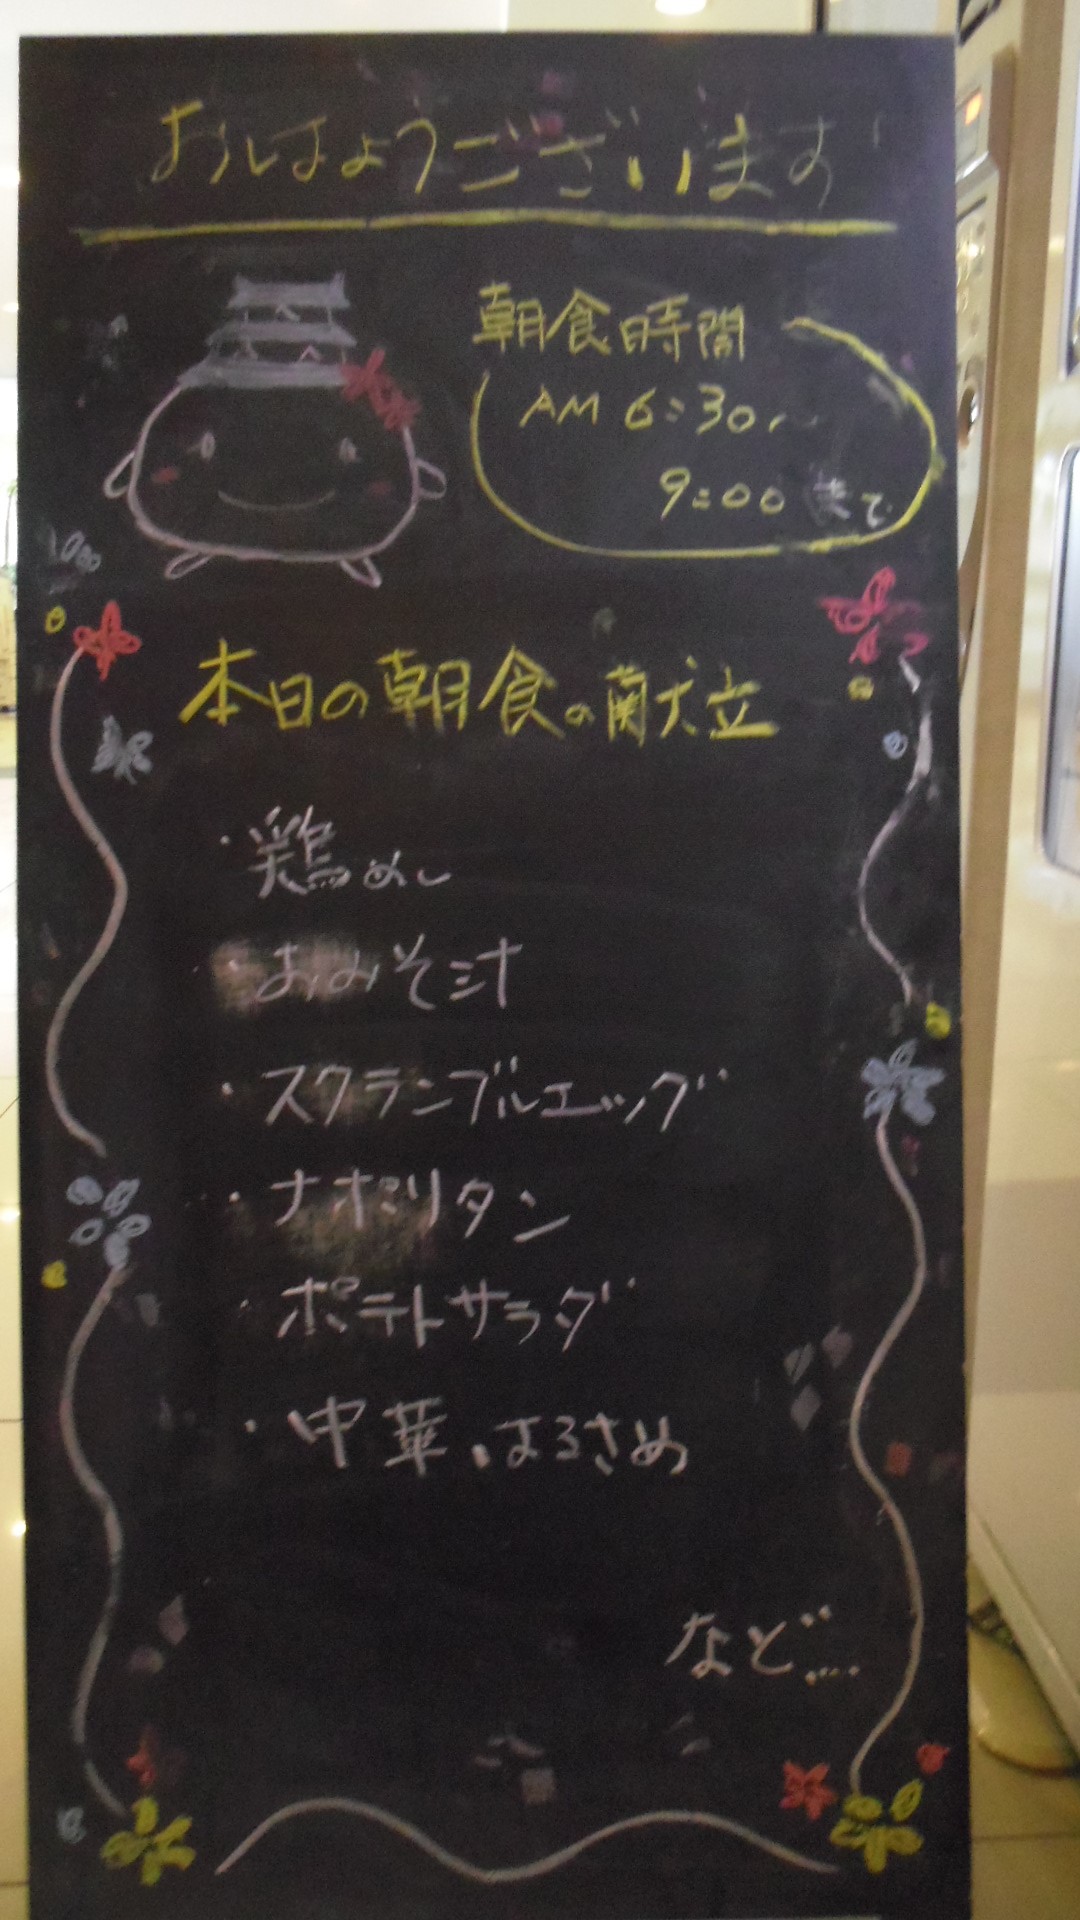 おはようございます
朝食時間
AM 6:30〜
9:00 まで
本日の朝食の献立
・鶏めし
・おみそ汁
・スクランブルエッグ
・ナポリタン
・ポテトサラダ
・中華はるさめ
など...